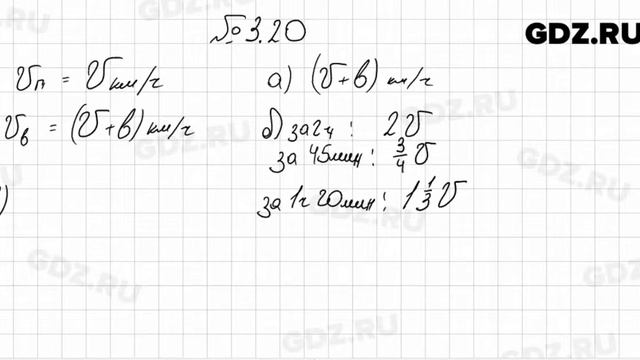 № 3.20
GDZ.RU
Vп = V км/ч
Vв = (V+в) км/ч
а) (V+в) км/ч
б) за 2ч : 2V
за 45мин : 3/4 V
за 1ч 20мин : 1 1/3 V
)
GDZ.RU
GDZ.RU
GDZ.RU
GDZ.RU
GDZ.RU
GDZ.RU
GDZ.RU